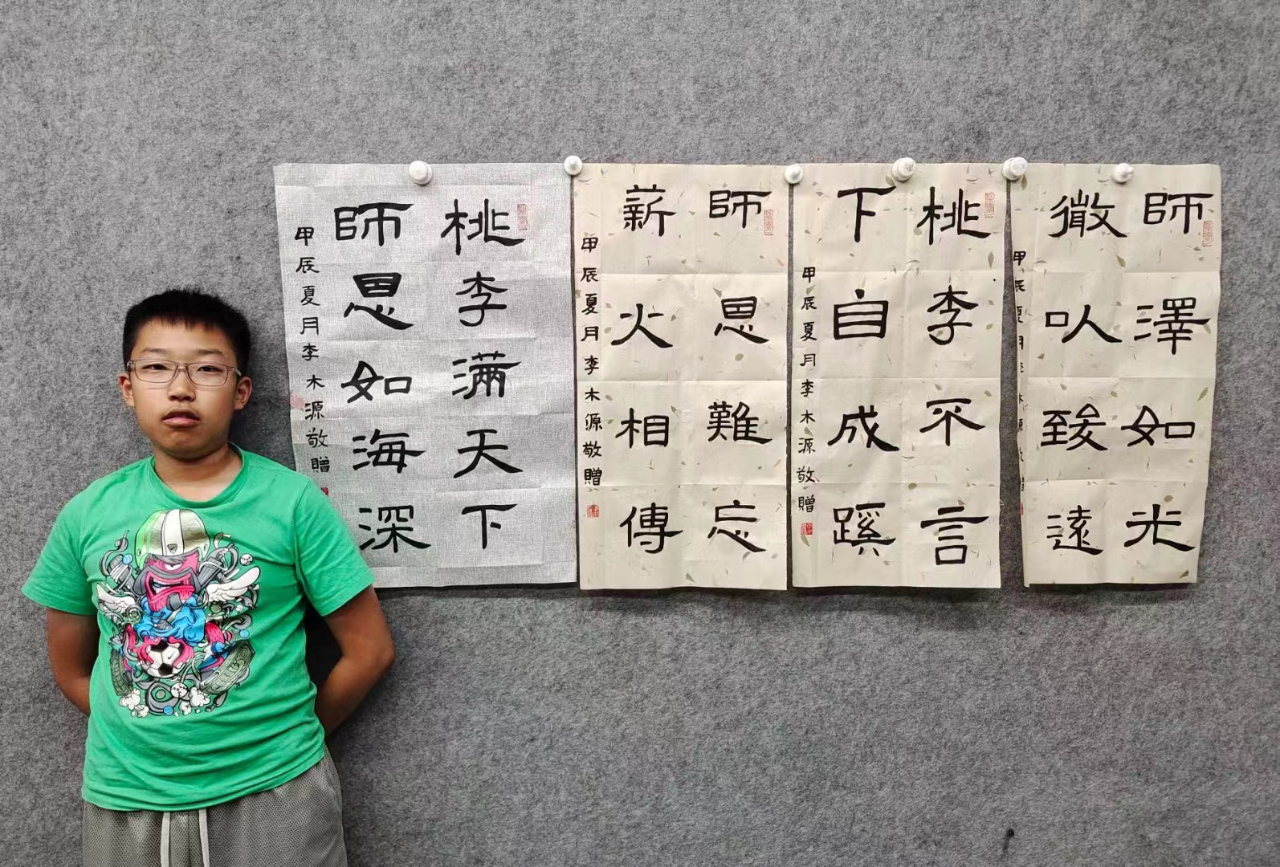 師澤如光
微以致遠
甲辰夏月李木源敬贈
桃李不言
下自成蹊
甲辰夏月李木源敬贈
師恩難忘
薪火相傳
甲辰夏月李木源敬贈
桃李满天下
師恩如海深
甲辰夏月李木源敬贈